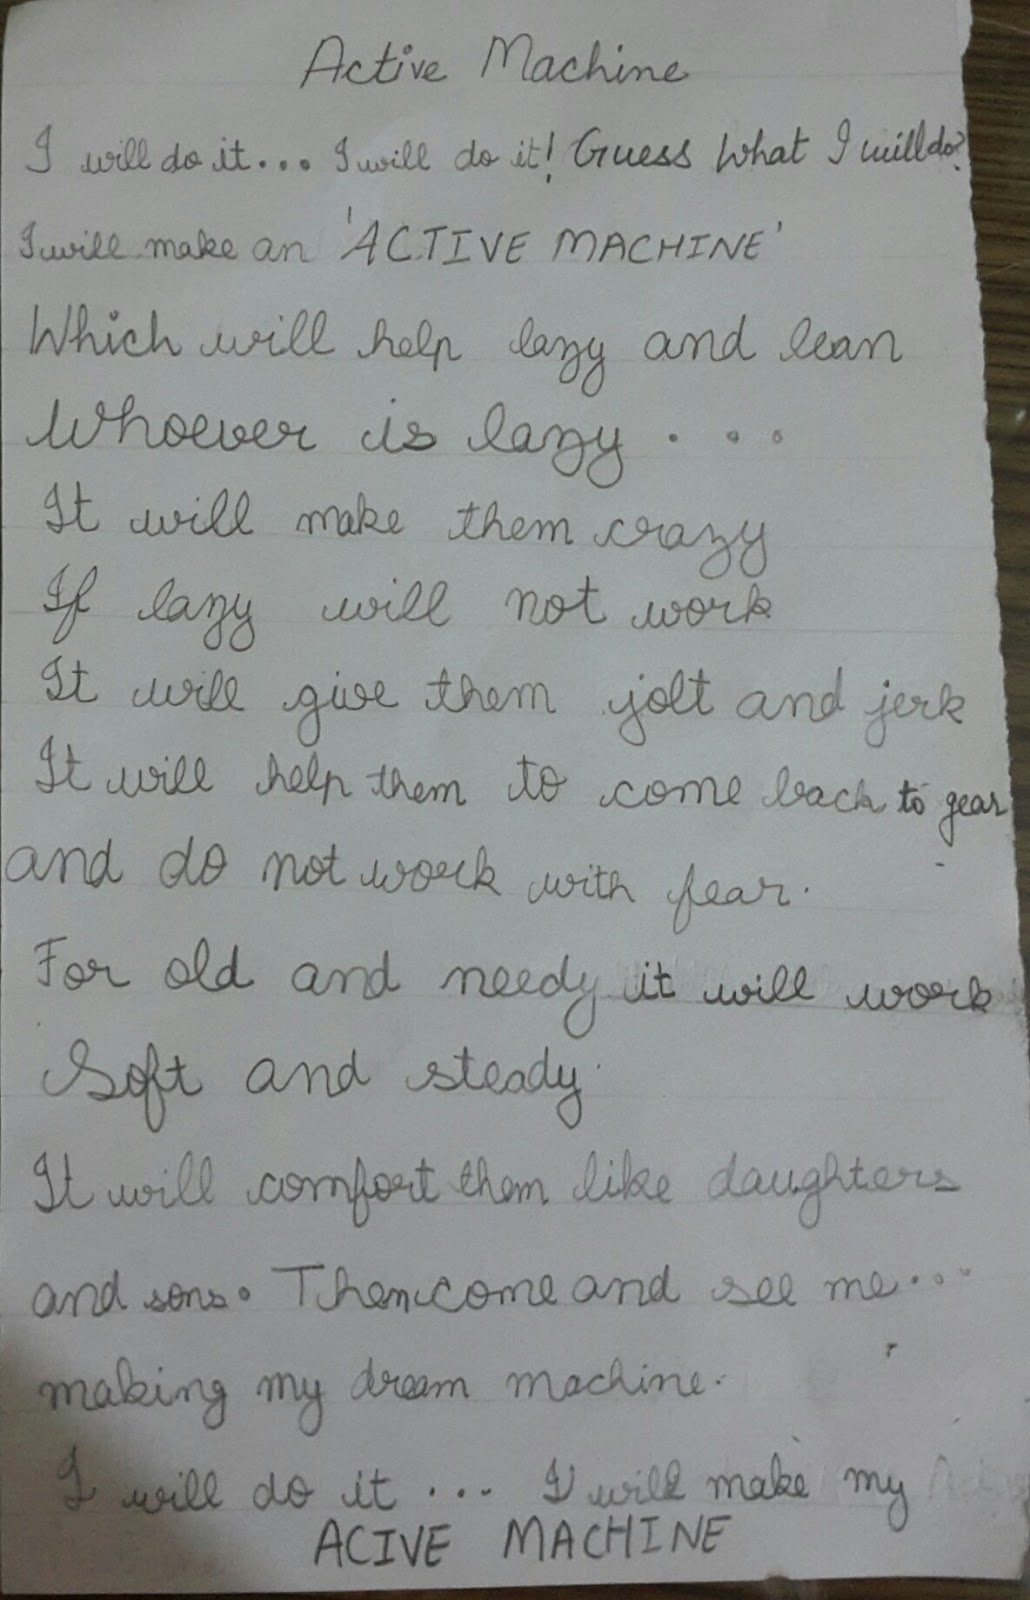 Active Machine
I will do it... I will do it! Guess What I will do?
I will make an 'ACTIVE MACHINE'
Which will help lazy and lean
Whoever is lazy...
It will make them crazy
If lazy will not work
It will give them jolt and jerk
It will help them to come back to gear
and do not work with fear.
For old and needy it will work
Soft and steady.
It will comfort them like daughters
and sons. Then come and see me...
making my dream machine.
I will do it... I will make my
ACIVE MACHINE